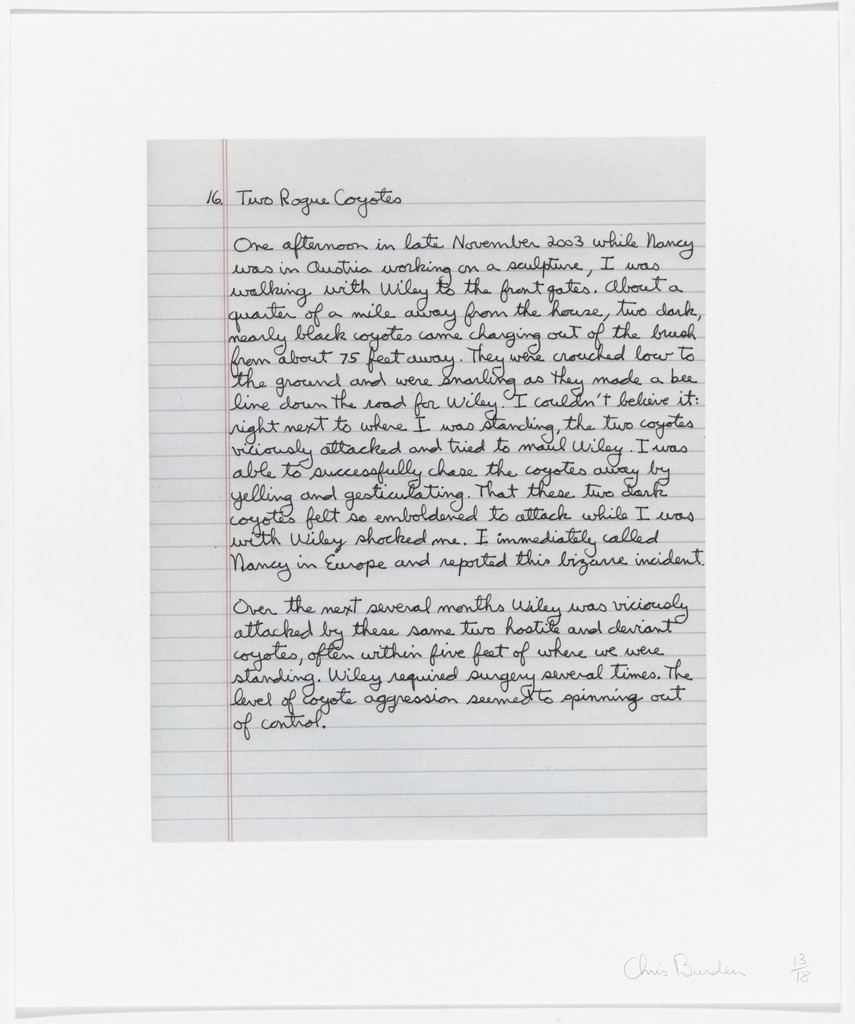 16. Two Rogue Coyotes
One afternoon in late November 2003 while Nancy
was in Austria working on a sculpture, I was
walking with Wiley to the front gates. About a
quarter of a mile away from the house, two dark,
nearly black coyotes came charging out of the brush
from about 75 feet away. They were crouched low to
the ground and were snarling as they made a bee
line down the road for Wiley. I couldn't believe it:
right next to where I was standing, the two coyotes
viciously attacked and tried to maul Wiley. I was
able to successfully chase the coyotes away by
yelling and gesticulating. That these two dark
coyotes felt so emboldened to attack while I was
with Wiley shocked me. I immediately called
Nancy in Europe and reported this bizarre incident.
Over the next several months Wiley was viciously
attacked by these same two hostile and deviant
coyotes, often within five feet of where we were
standing. Wiley required surgery several times. The
level of coyote aggression seemed to spinning out
of control.
Chris Burden 13/18